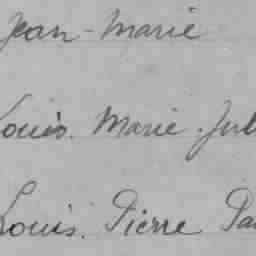 Jean-Marie
Louis. Marie. Jul
Louis. Pierre Pa